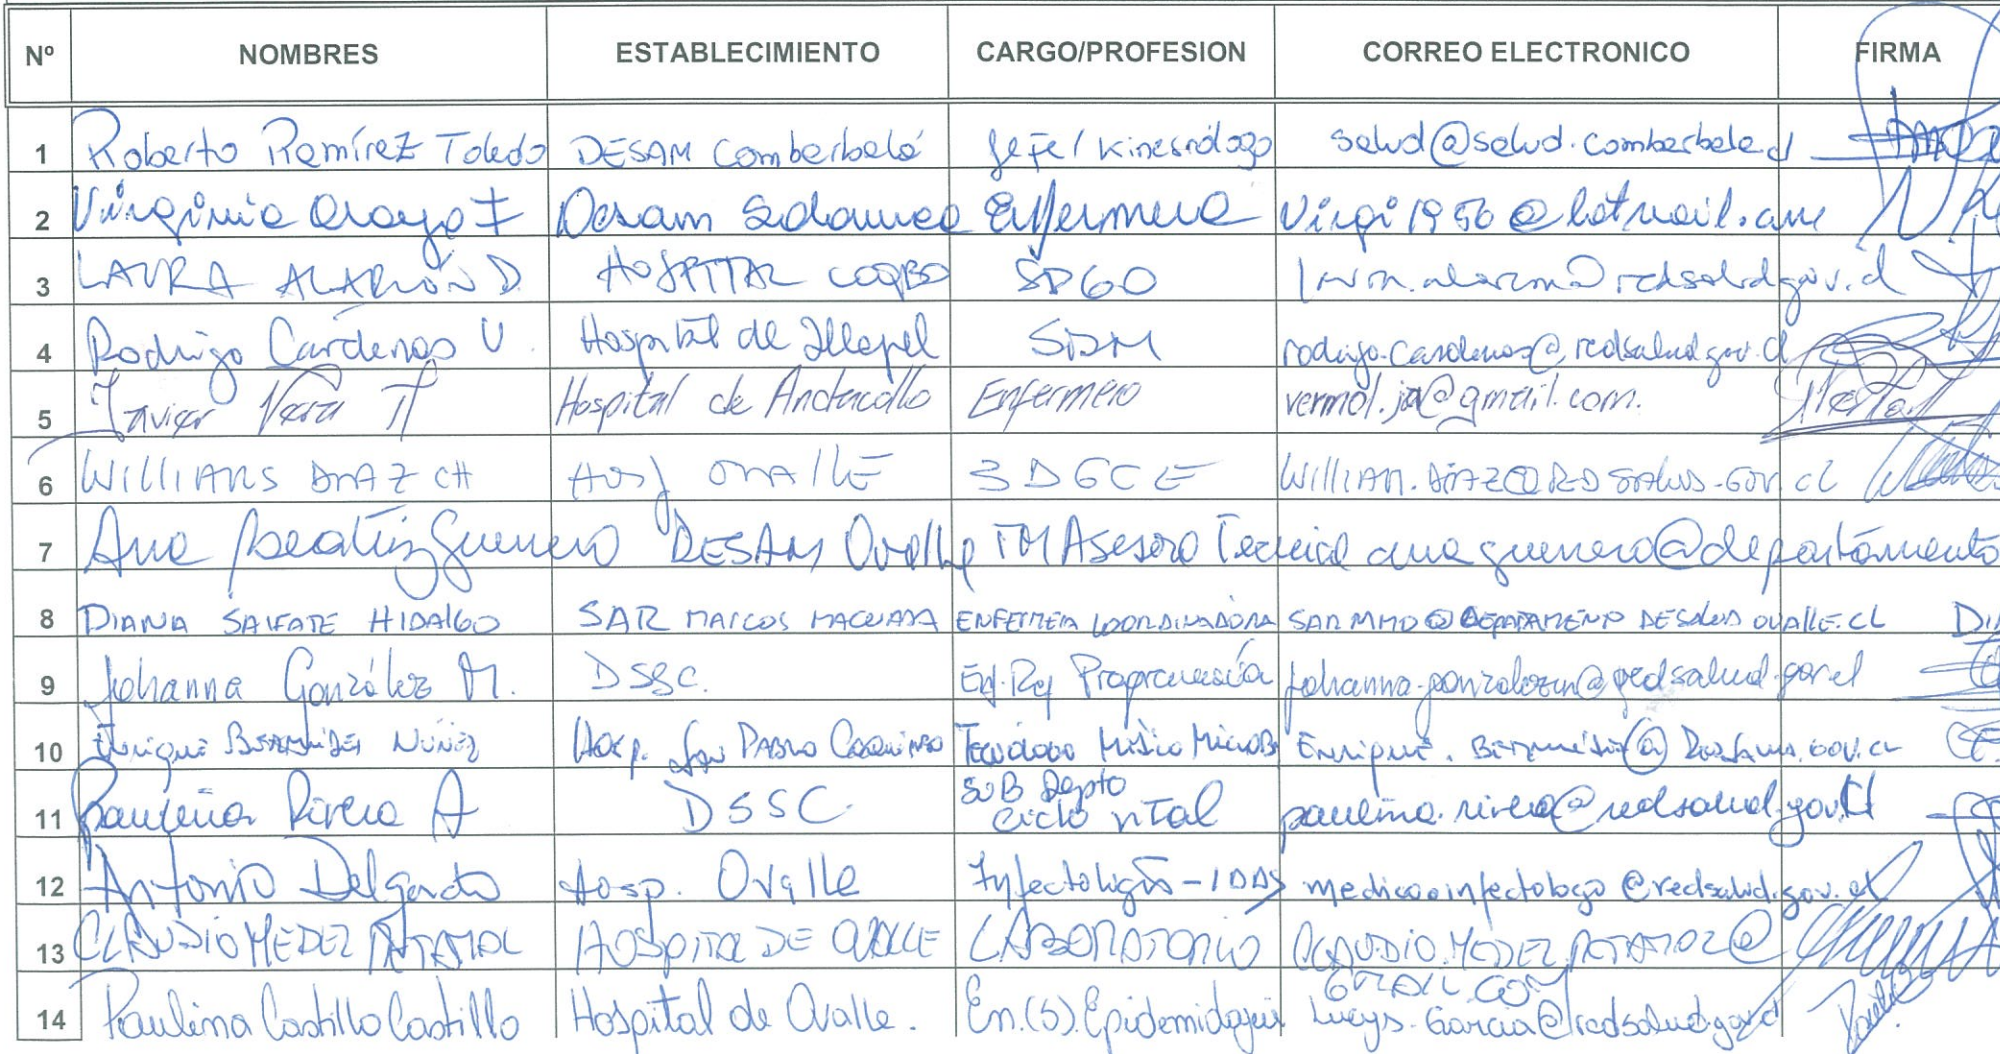 Nº NOMBRES ESTABLECIMIENTO CARGO/PROFESION CORREO ELECTRONICO FIRMA
1 Roberto Ramírez Toledo DESAM Combarbalá Jefe/Kinesiólogo salud@salud.combarbala.cl
2 Virginia Araya Desam Salamanca Enfermera Virgi1956@hotmail.com
3 LAURA ALARCÓN D. HOSPITAL COQBO SDGO laura.alarcon@redsalud.gov.cl
4 Rodrigo Cárdenas V. Hospital de Illapel SDM rodrigo.cardenas@redsalud.gov.cl
5 Javier Vera Hospital de Andacollo Enfermero vermol.ja@gmail.com.
6 WILLIANS DIAZ CH Hosp OVALLE SDGCE WILLIAM.DIAZ@REDSALUD.GOV.CL
7 Ana Beatriz Guerrero DESAM Ovalle TM Asesora Técnica ana guerrero@departamento
8 DIANA SALFATE HIDALGO SAR MARCOS MACUADA ENFERMERA COORDINADORA SARMMD@DEPARTAMENTO DESALUD OVALLE.CL
9 Johanna González M. DSSC. johanna.gonzalezm@redsalud.gov.cl
10 Enrique Bermúdez Núñez Hosp. San Pablo Coquimbo Tecnólogo Médico Enrique.Bermudez@Redsalud.gov.cl
11 Paulina Rivera A DSSC SUB Depto
ciclo vital paulina.rivera@redsalud.gov.cl
12 Antonio Delgado Hosp. Ovalle medicoinfectologo@redsalud.gov.cl
13 CLAUDIO MEDEZ HOSPITAL DE OVALLE LABORATORIO
GMAIL.COM
14 Paulina Castillo Castillo Hospital de Ovalle. En.(s).Epidemiología Lucys.Garcia@redsalud.gov.cl